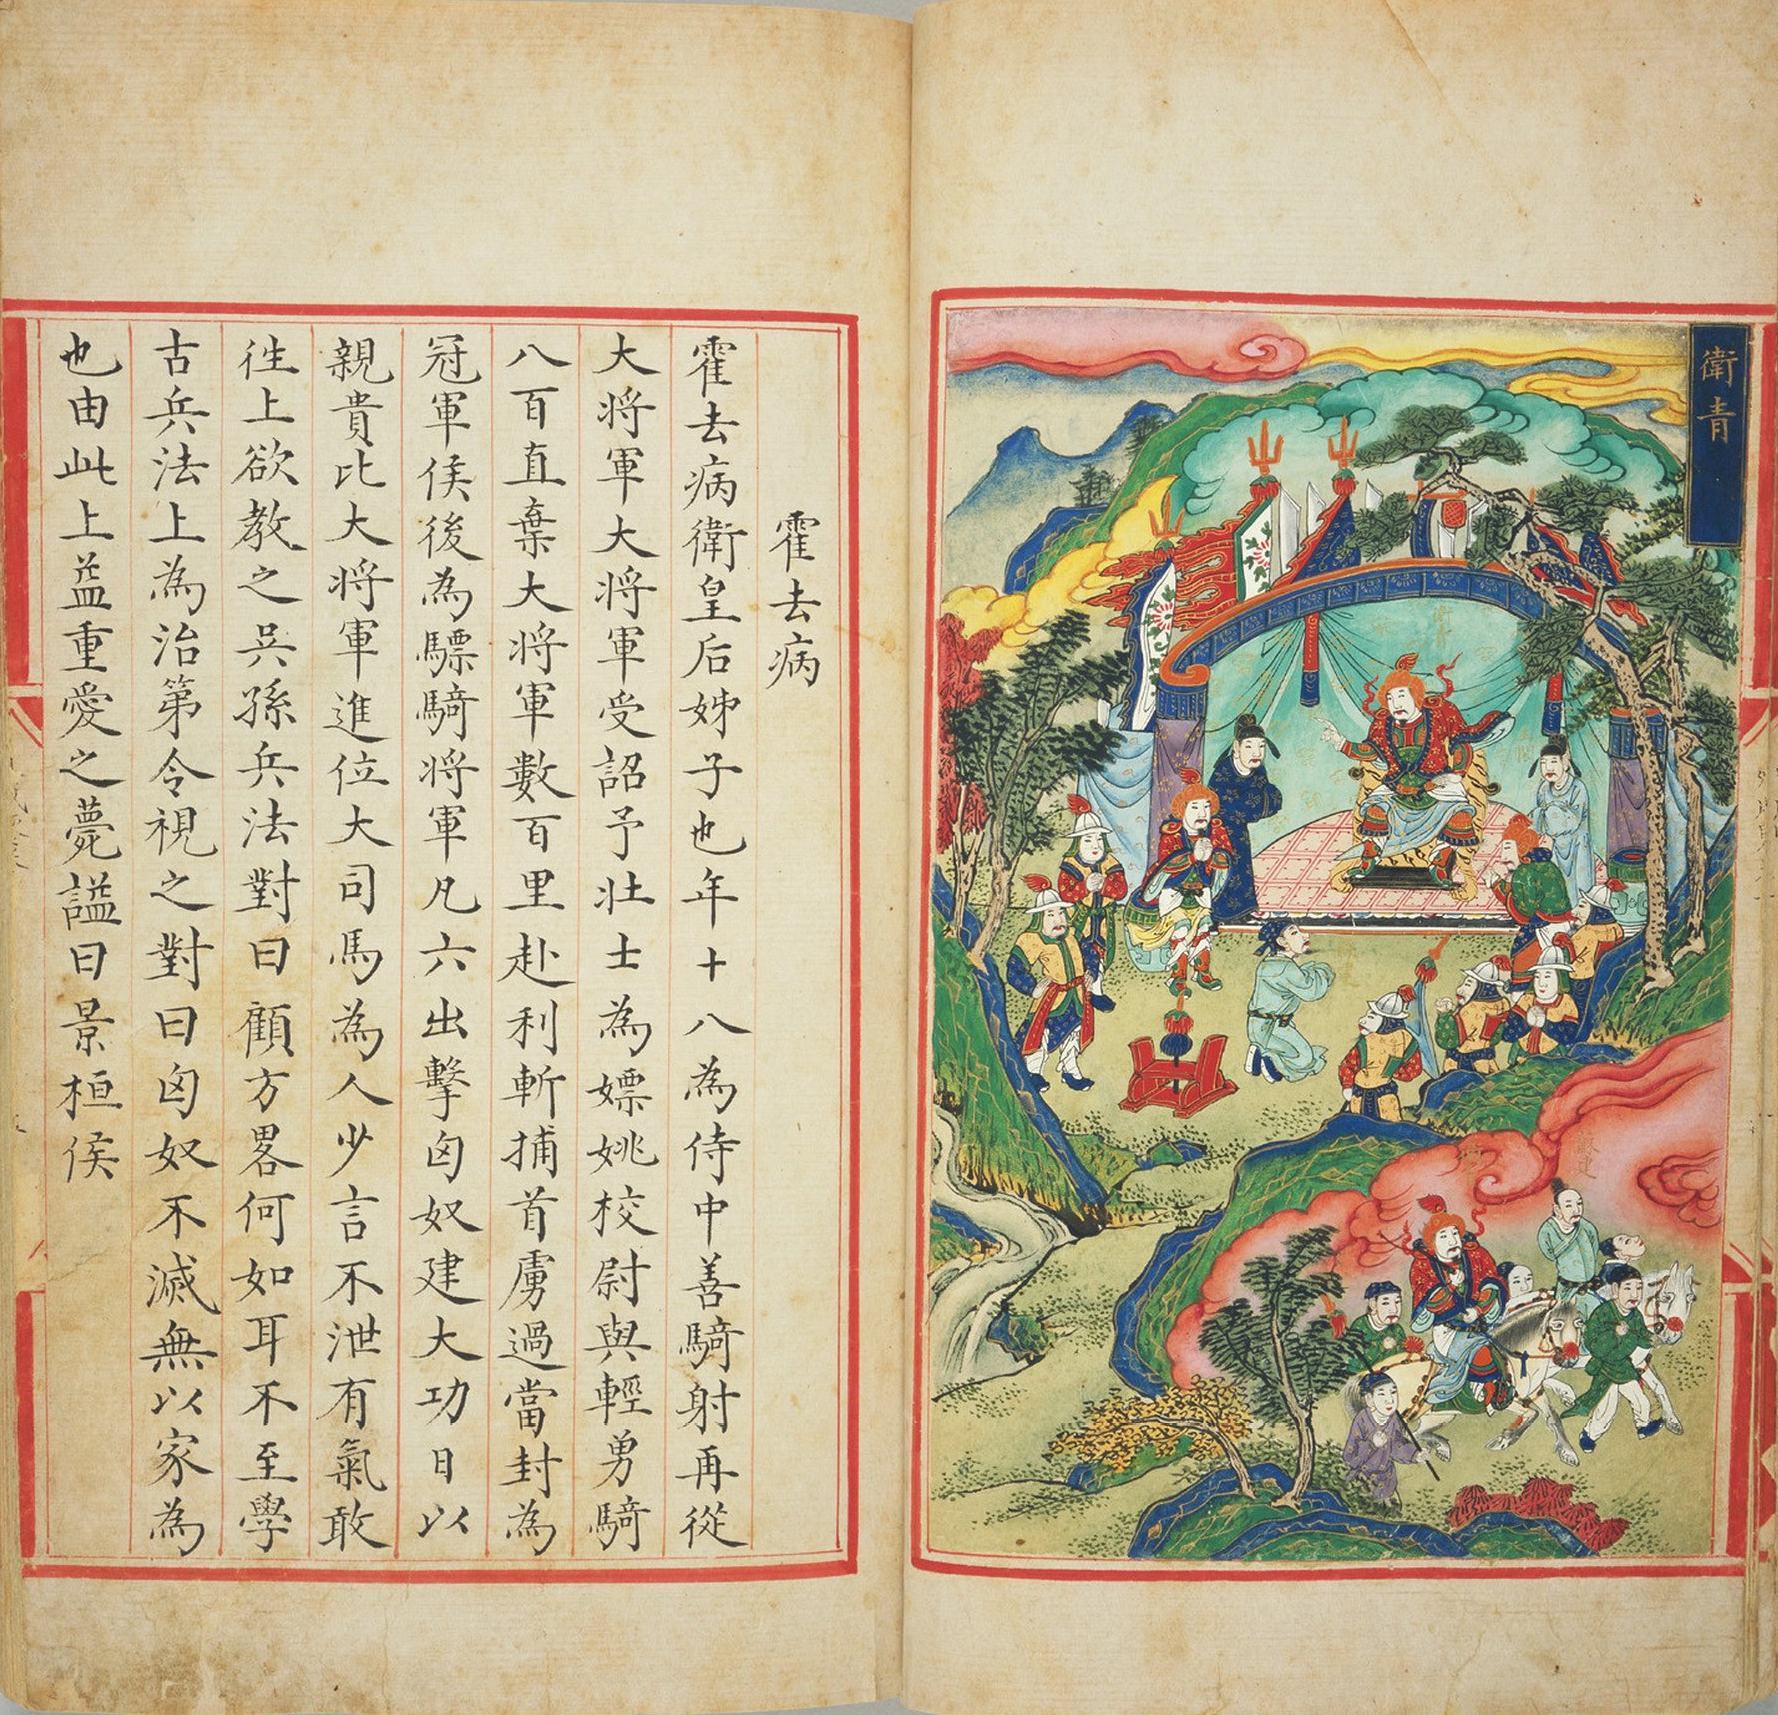 衛青
霍去病
霍去病衛皇后姊子也年十八為侍中善騎射再從
大將軍大將軍受詔予壮士為嫖姚校尉與輕勇騎
八百直棄大將軍數百里赴利斬捕首虜過當封為
冠軍侯後為驃騎將軍凡六出擊匈奴建大功日以
親貴比大將軍進位大司馬為人少言不泄有氣敢
徃上欲教之吳孫兵法對曰顧方畧何如耳不至學
古兵法上為治第令視之對曰匈奴不滅無以家為
也由此上益重愛之薨謚曰景桓侯